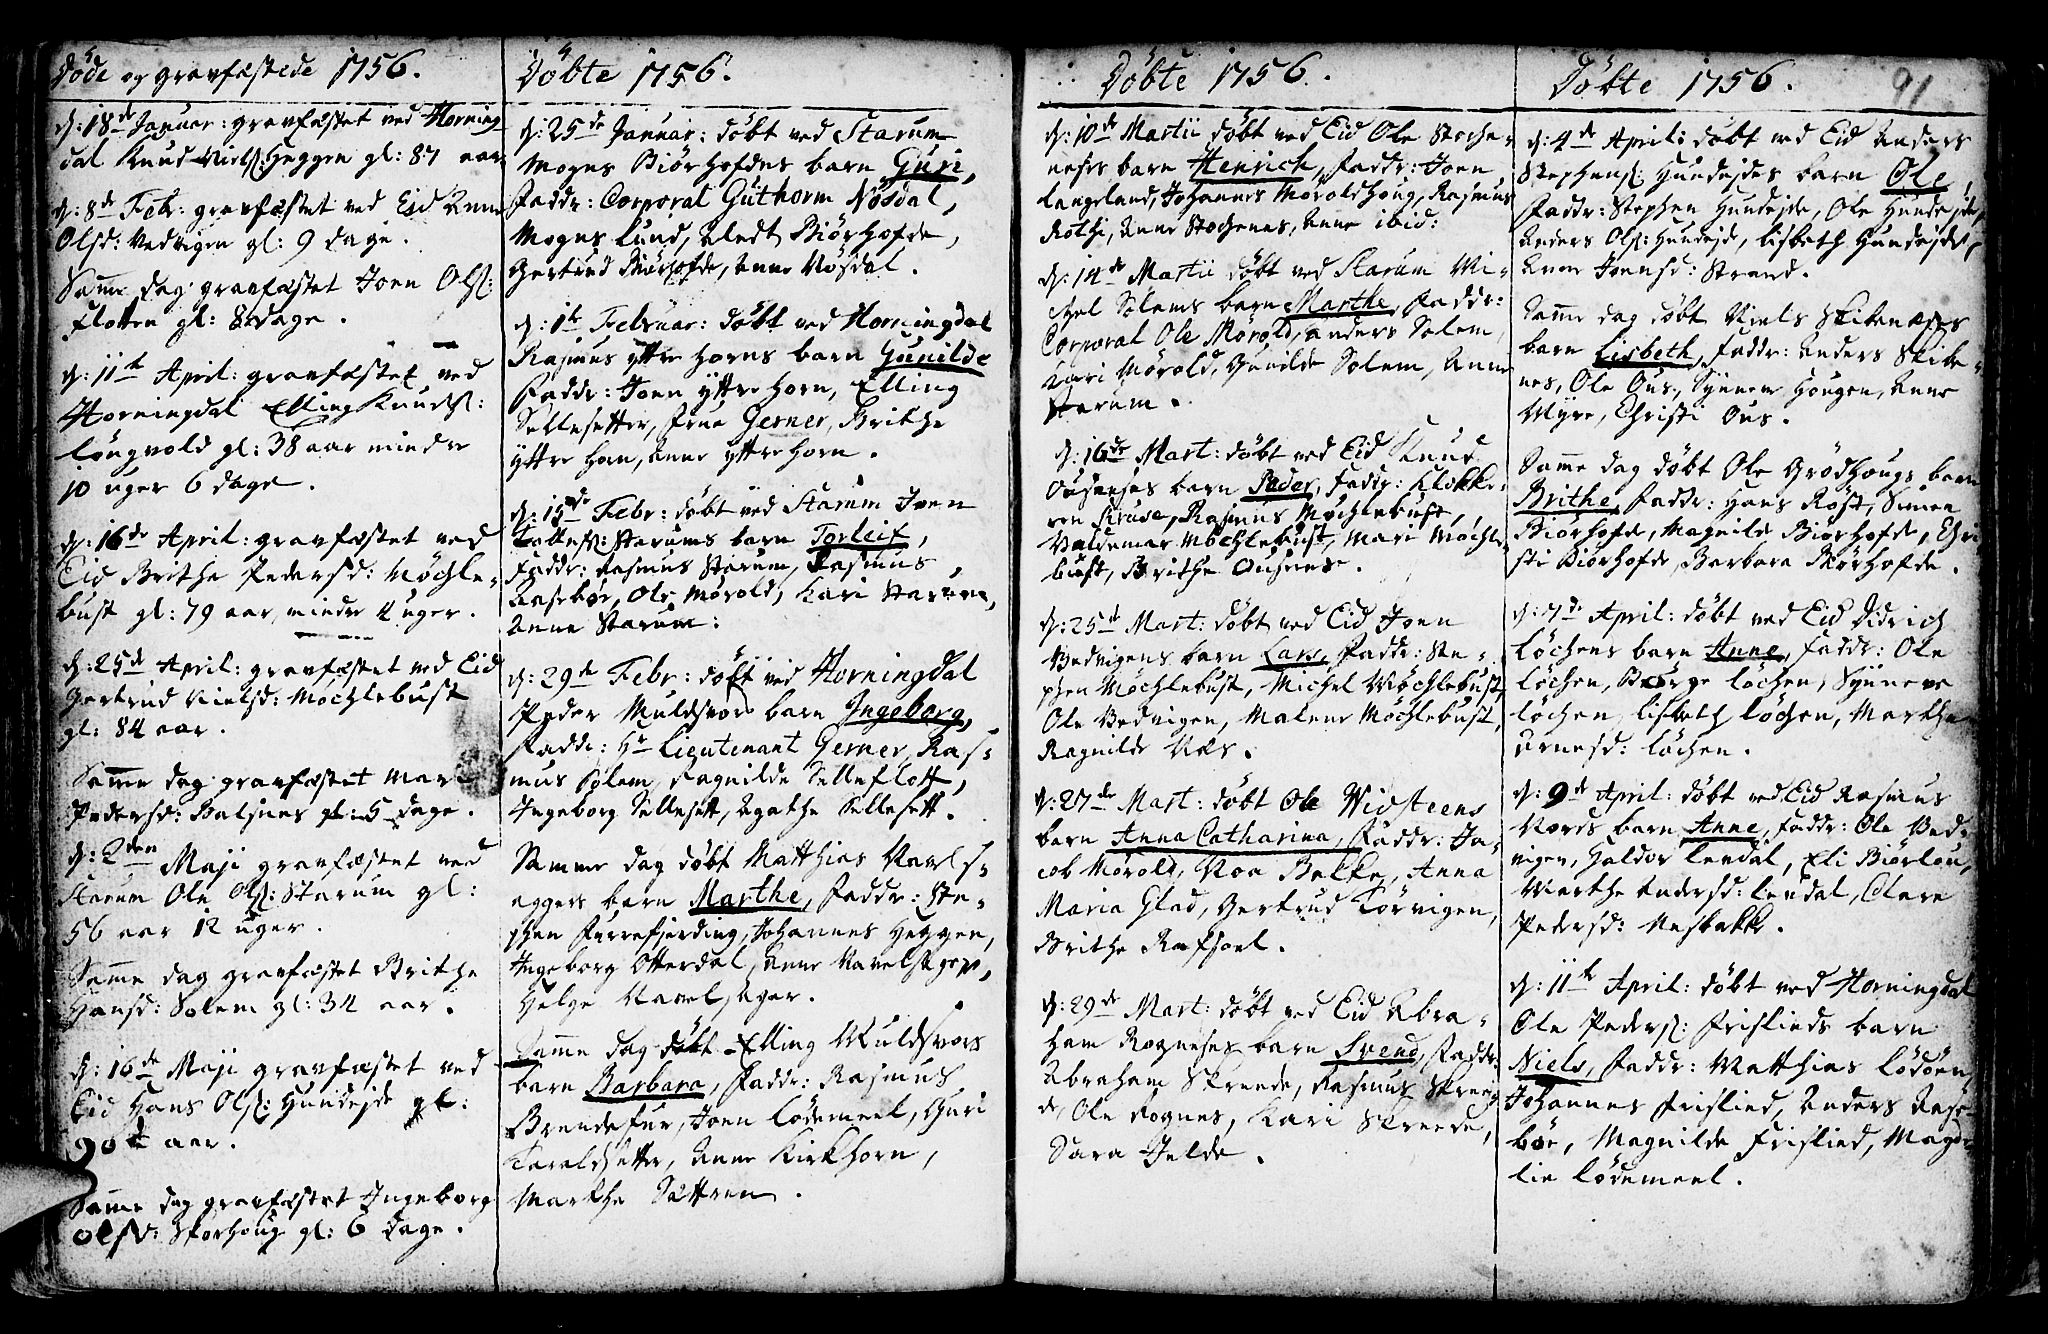 Døde og gravfæstede 1756.
d: 18de Januar: gravfæstet ved Horning
dal Knud Nielsß: Heggen gl: 87 aar
d: 8de Febr: gravfæstet ved Eid Anne
Olsd: Vedvigen gl: 9 dage.
Samme dag gravfæstet Joen Olsß:
Flotten gl: 8 dage.
d: 11te April: gravfæstet ved
Horningdal Elling Knudsß:
Lougvold gl: 38 aar mindre
10 uger 6 dage.
d: 16de April: gravfæstet ved
Eid Brithe Pedersd: Møchle-
bust gl: 79 aar, mindre 4 uger.
d: 25de April: gravfæstet ved Eid
Gertrud Nielsd: Møchlebust
gl: 84 aar.
Samme dag gravfæstet Mari
Pedersd: Balsnes gl: 5 dage.
d: 2den Maji gravfæstet ved
Starum Ole Olsß: Starum gl:
56 aar 12 uger.
Samme dag gravfæstet Brithe
Hansd: Solem gl: 34 aar.
d: 16de Maji gravfæstet ved
Eid Hans Olsß: Hundejde gl:
90 aar.
Samme dag gravfæstet Ingeborg
Olsd: Storhoug gl: 6 dage.
Døbte 1756.
d: 25de Januar: døbt ved Starum
Mogns Biørhofdes barn Guri,
Faddr: Corporal Guthorm Nøsdal,
Mogns Lund, Bledt Biørhofde,
Gertrud Biørhofde, Anne Nøsdal.
d: 1te Februar: døbt ved Horningdal
Rasmus yttre Horns barn Gunilde
Faddr: Joen yttre Horn, Elling
Sellesetter, Frue Gerner, Brithe
yttre Horn, Anne yttre Horn.
d: 15de Febr: døbt ved Starum Joen
Tollefsß: Starums barn Torleif,
Faddr: Rasmus Starum, Rasmus
Aasebøe, Ole Mørold, Kari Starum,
Anne Starum:
d: 29de Febr: døbt ved Horningdal
Peder Muldsvor barn Ingeborg,
Faddr: Hr Lieutenant Gerner, Ras-
mus Solem, Ragnilde Selleflott,
Ingeborg Sellesett, Agathe Sellesett.
Samme dag døbt Matthias Navels-
aggers barn Marthe, Faddr: Ste-
phen Furrefjerding, Johannes Heggen,
Ingeborg Otterdal, Anne Navelsager,
Helge Navelsager.
Samme dag døbt Elling Muldsvors
barn Barbara, Faddr: Rasmus
Brendefur, Joen Lødemeel, Guri
Taraldsetter, Anne Kirkhorn,
Marthe Sættren.
Døbte 1756.
d: 10de Martii døbt ved Eid Ole Stoche-
neses barn Henrich, Faddr: Joen
Langeland, Johannes Møroldhoug, Rasmus
Rothi, Anne Stochenes, Anne ibid:
d: 14de Martii døbt ved Starum Mi-
chel Solems barn Marthe, Faddr:
Corporal Ole Mørold, Anders Solem,
Kari Mørold, Gunilde Solem, Anne
Starum.
d: 16de Mart: døbt ved Eid Knud
Ouseneses barn Peder, Faddr: Klokke-
ren Kruse, Rasmus Møchlebust,
Valdemar Møchlebust, Mari Møchle-
bust, Brithe Ousenes.
d: 25de Mart: døbt ved Eid Joen
Vedvigens barn Lars, Faddr: Ste-
phen Møchlebust, Michel Møchlebust,
Ole Vedvigen, Malene Møchlebust,
Ragnilde Næs.
d: 27de Mart: døbt Ole Widsteens
barn Anna Catharina, Faddr: Ja-
cob Mørold, Noa Balke, Anna
Maria Glad, Gertrud Tørvigen,
Brithe Rafsoel.
d: 29de Mart: døbt ved Eid Abra-
ham Rogneses barn Svend, Faddr:
Abraham Skreede, Rasmus Skree-
de, Ole Rognes, Kari Skreede,
Sara Jelde.
Døbte 1756.
91
d: 4de April: døbt ved Eid Anders
Stephensß: Hundejdes barn Ole,
Faddr: Stephen Hundejde, Ole Hundejde,
Anders Olsß: Hundejd, Lisbeth Hundejde,
Anne Joensd: Strand.
Samme dag døbt Niels Skibenæses
barn Lisbeth, Faddr: Anders Skibe-
nes, Ole Ous, Synneve Hougen, Anne
Myre, Christi Ous.
Samme dag døbt Ole Grødhougs barn
Brithe, Faddr: Hans Røst, Simen
Biørhofde, Magnild Biørhofde, Chri-
sti Biørhofde, Barbara Biørhofde.
d: 7de April: døbt ved Eid Didrich
Løchens barn Anne, Faddr: Ole
Løchen, Børge Løchen, Synneve
Løchen, Lisbeth Løchen, Marthe
Arnesd: Løchen.
d: 9de April: døbt ved Eid Rasmus
Nords barn Anne, Faddr: Ole Ved-
vigen, Haldor Lendal, Eli Biørlou,
Marthe Andersd: Lendal, Clare
Pedersd: Nesbakk.
d: 11te April: døbt ved Horningdal
Ole Pedersß: Frislieds barn
Niels, Faddr: Matthias Lødøen,
Johannes Frislied, Anders Aase-
bøe, Magnilde Frislied, Magde-
lie Lødemeel.